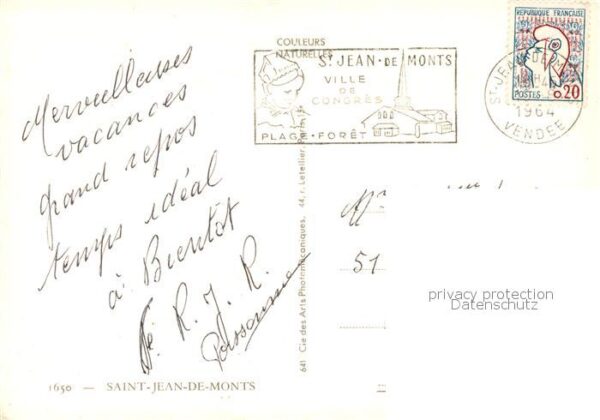 Merveilleuses
vacances
grand repos
temps idéal
à Bientôt
R. J. R.
1650 — SAINT-JEAN-DE-MONTS
COULEURS
NATURELLES
641 Cie des Arts Photomécaniques, 44, r. Letellier, Paris 15e
ST JEAN-DE MONTS
VILLE
DE
CONGRÈS
PLAGE-FORÊT
REPUBLIQUE FRANÇAISE
POSTES 0,20
1964
VENDEE
51
privacy protection
Datenschutz